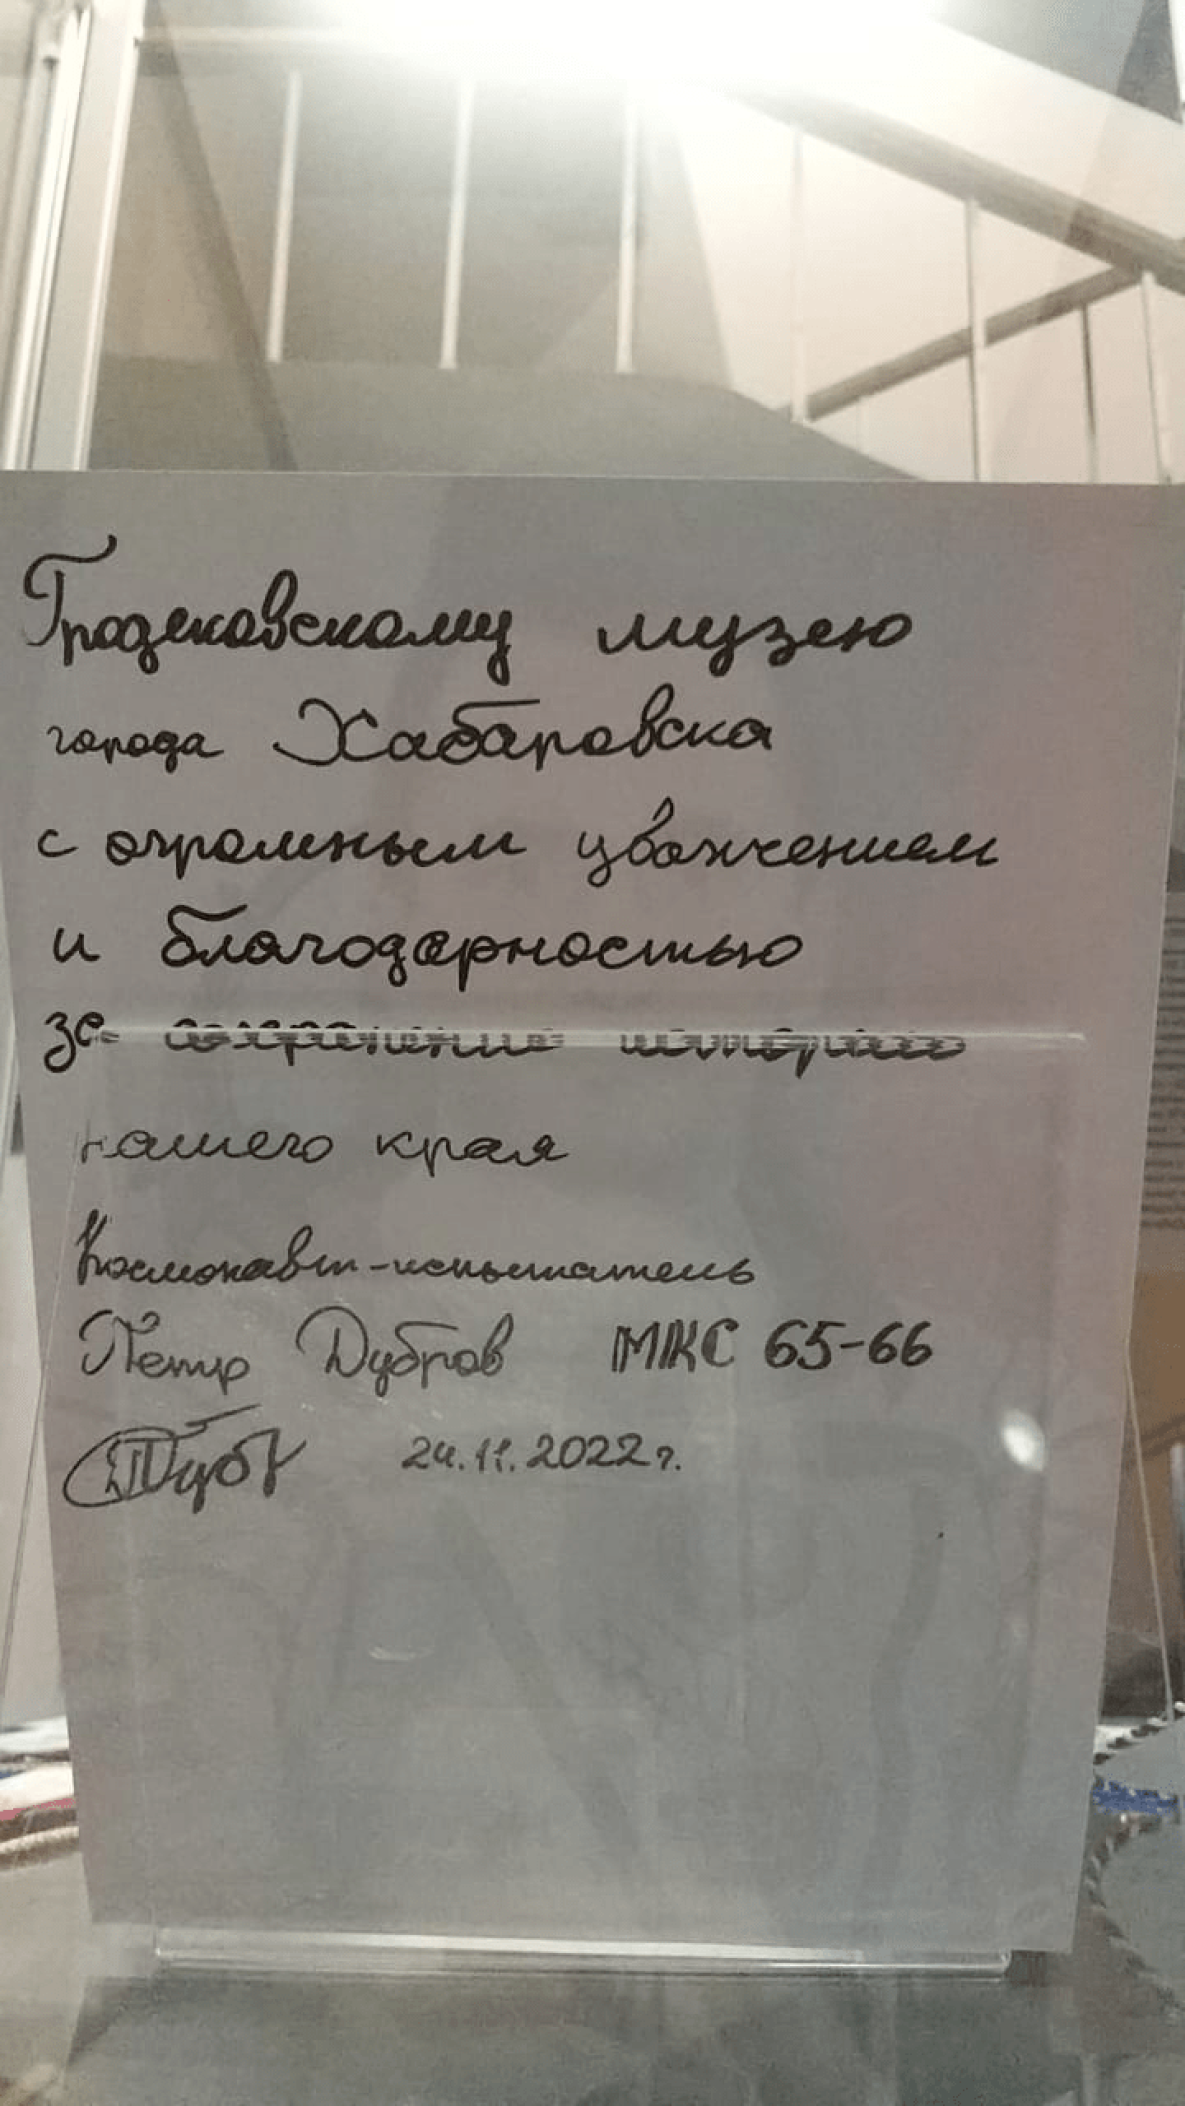 Гродековскому музею
города Хабаровска
с огромным уважением
и благодарностью
за сохранение истории
нашего края
Космонавт-испытатель
Пётр Дубров МКС 65-66
Дубр
24.11.2022г.